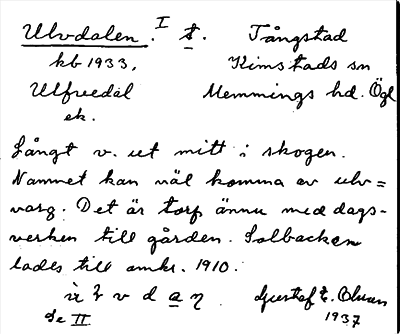 Ulvdalen. I t. Tångstad
kb 1933. Kimstads sn
Ulfvedal Memmings hd. Ögl
ek.
Långt v. ut mitt i skogen.
Namnet kan väl komma av ulv=
varg. Det är torp ännu med dags-
verken till gården. Solbacken
lades till omkr. 1910.
Gustaf E. Olsson
Se II 1937